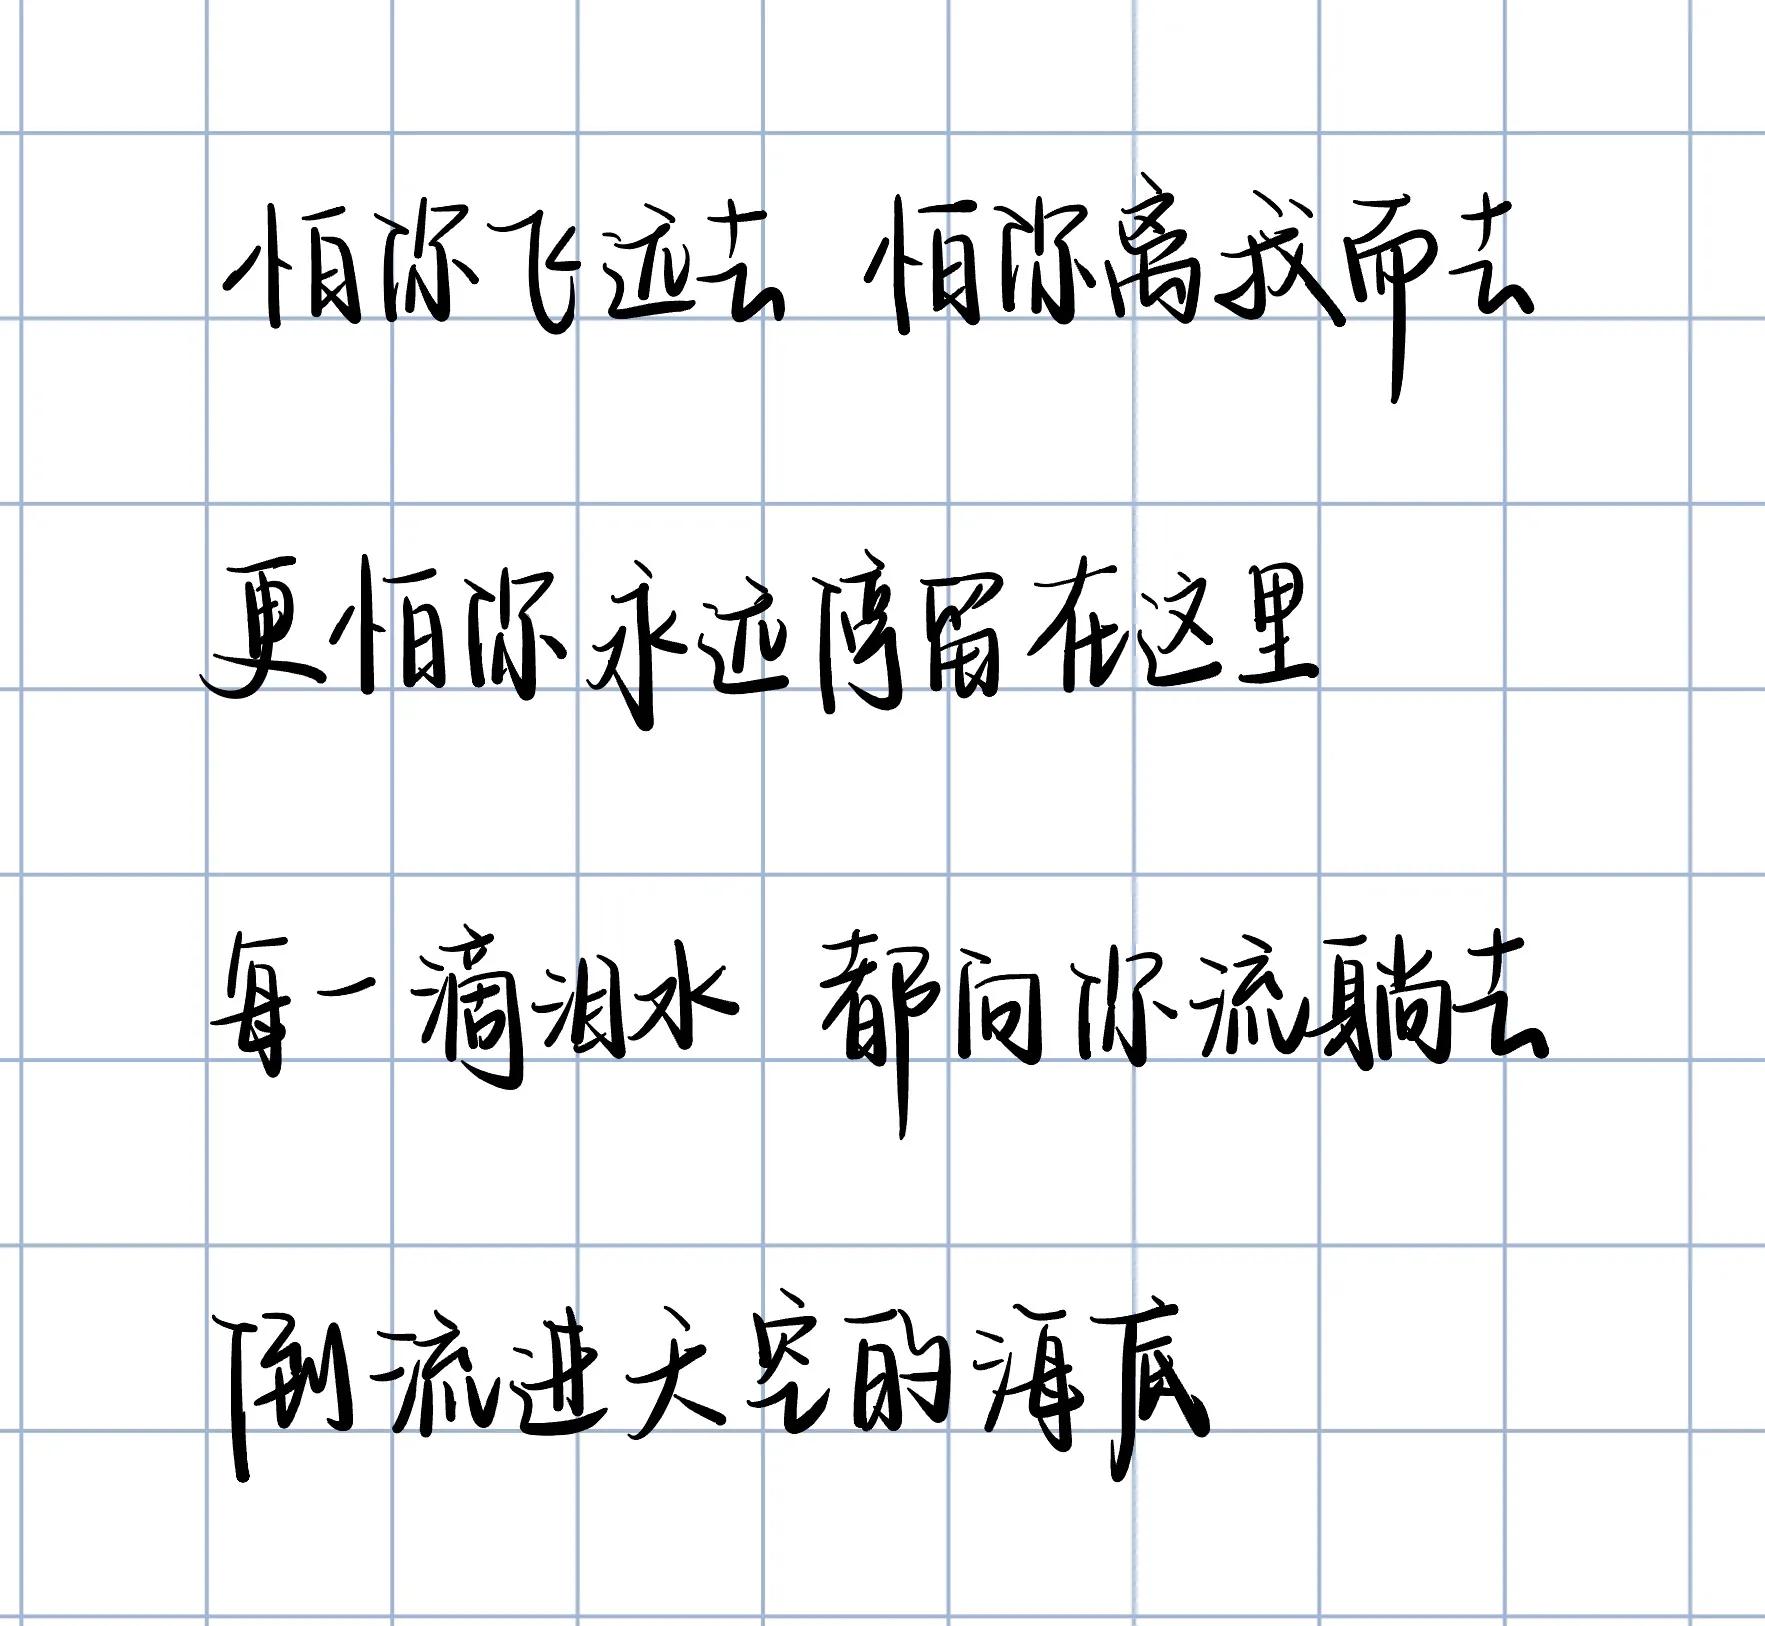 怕你飞远去 怕你离我而去
更怕你永远停留在这里
每一滴泪水 都向你流躺去
倒流进天空的海底